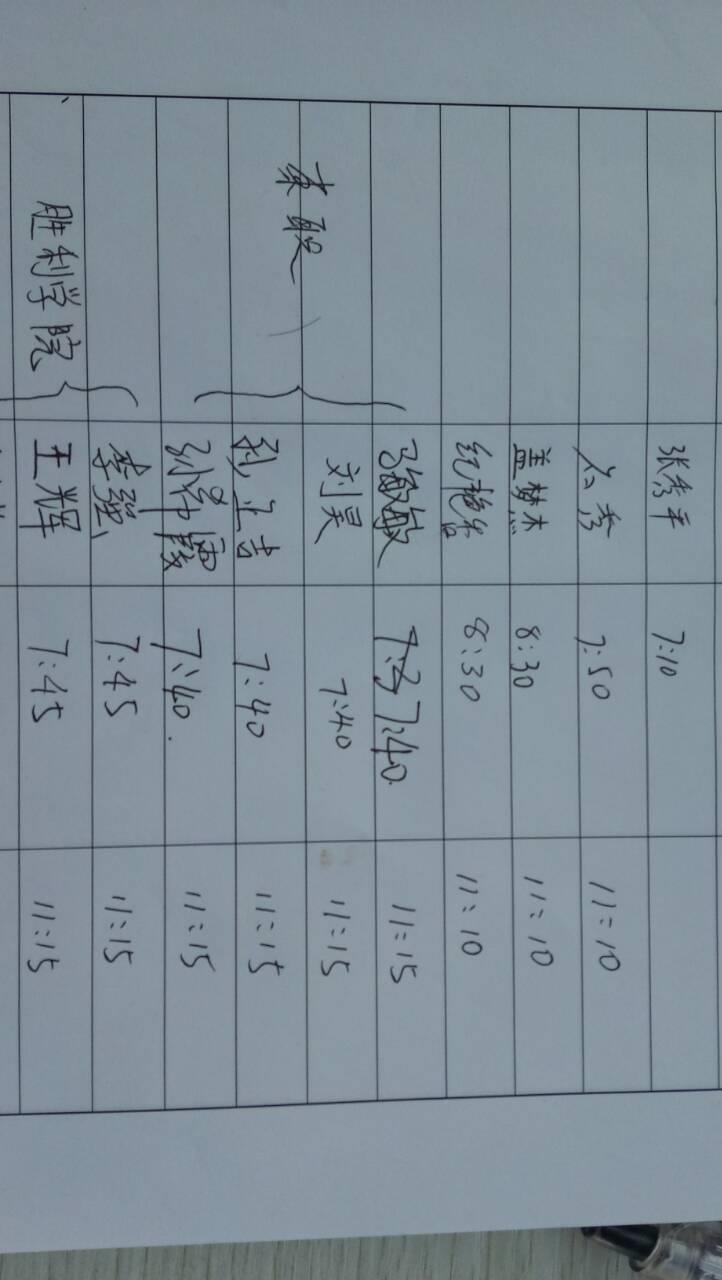 张秀平 7:10
秀 7:50 11:10
盖梦杰 8:30 11:10
纪艳 8:30 11:10
敏敏 7:40 11:15
东职 刘昊 7:40 11:15
孙立吉 7:40 11:15
7:40 11:15
李强 7:45 11:15
胜利学院 王辉 7:45 11:15